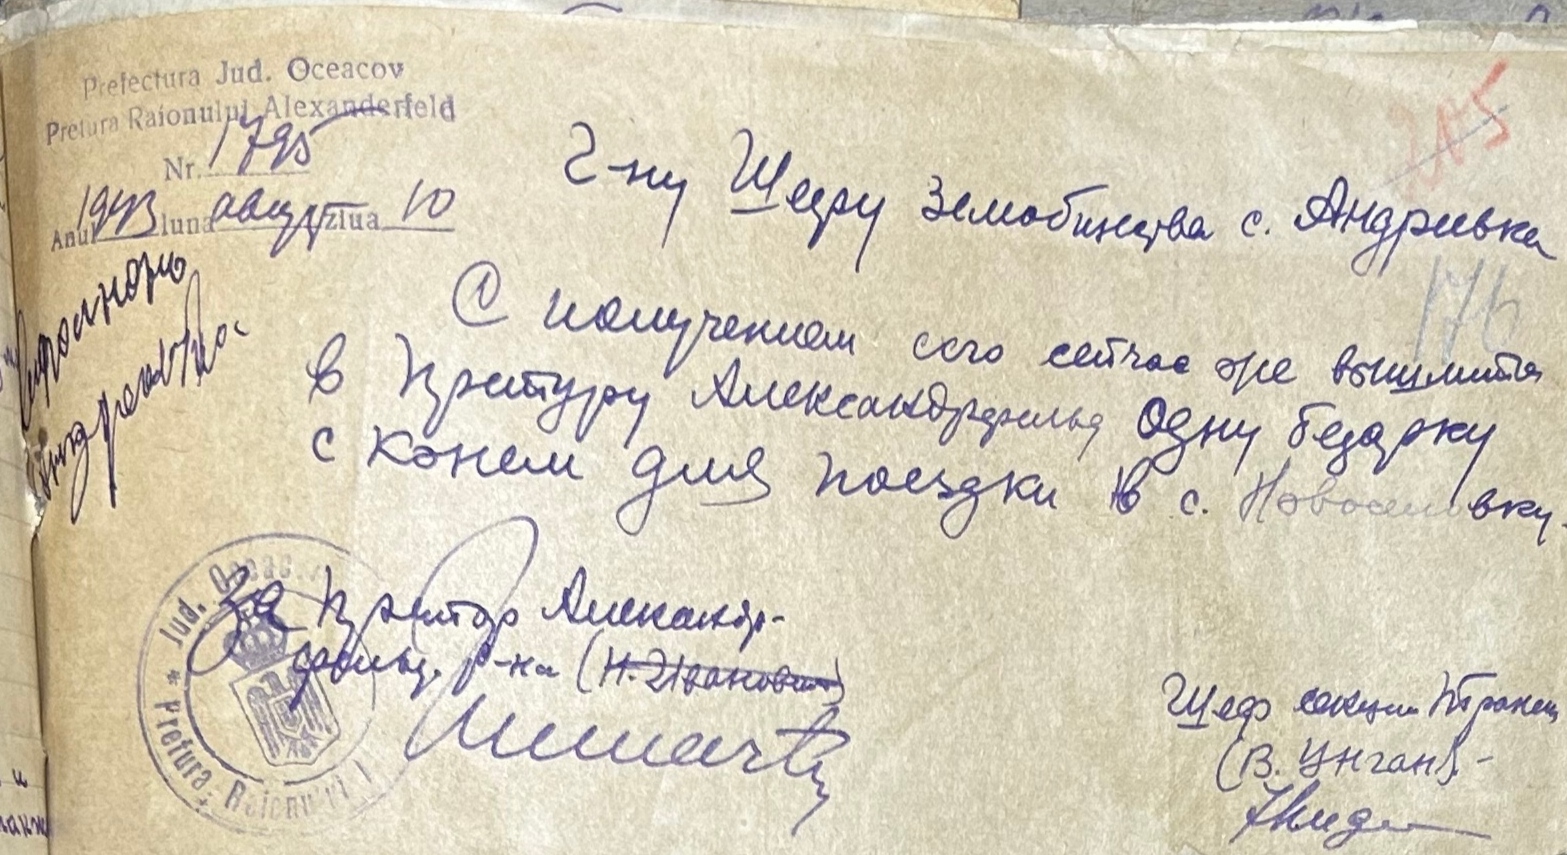 Prefectura Jud. Oceacov
Pretura Raionului Alexanderfeld
Nr. 1795
Anul 1943 luna август ziua 10
205
Г-ну Шефу Земобщества с. Андреевка
176
С получением сего сейчас же вышлите
в Претуру Александрфельд одну бедарку
с конем для поездки в с. Новоселовку.
За Претор Александр-
фельд. р-на (Н. Иванович)
Шеф секции
(В. Унган).-
Jud. Oceac.
* Pretura Raionului